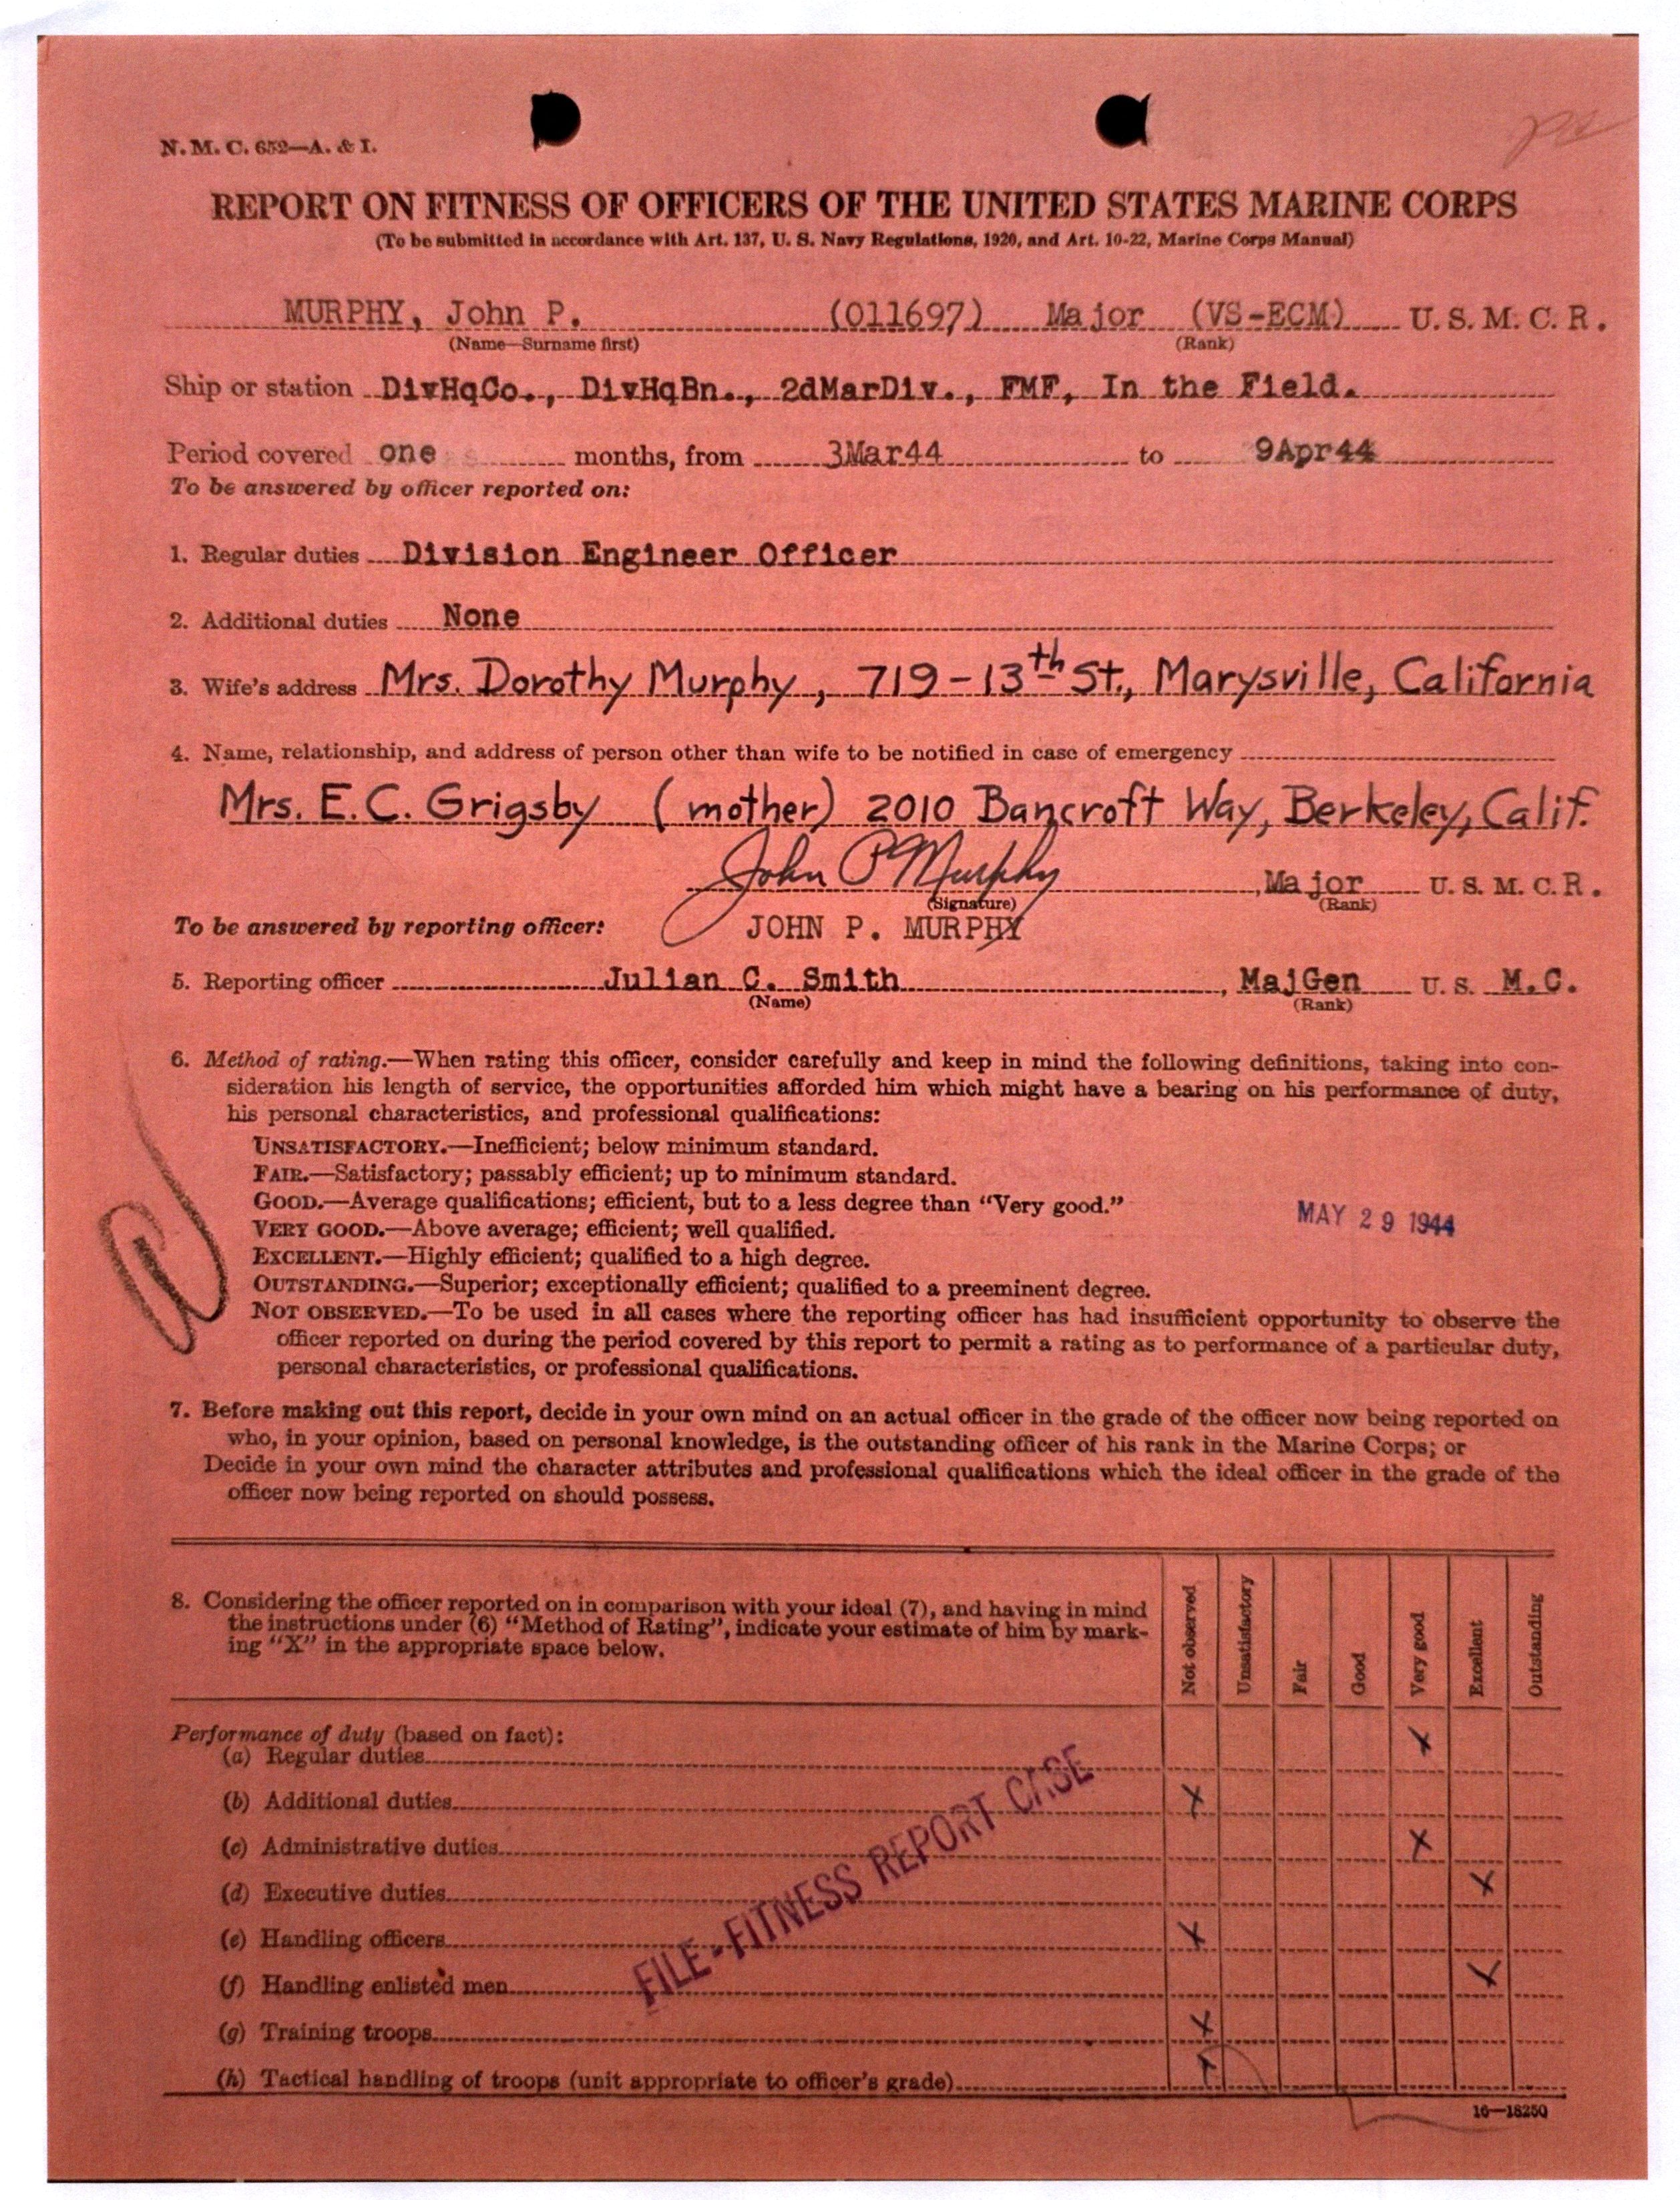 N. M. C. 652—A. & I.
REPORT ON FITNESS OF OFFICERS OF THE UNITED STATES MARINE CORPS
(To be submitted in accordance with Art. 137, U. S. Navy Regulations, 1920, and Art. 10-22, Marine Corps Manual)
MURPHY, John P. (011697) Major (VS-ECM) U. S. M. C. R.
(Name—Surname first) (Rank)
Ship or station DivHqCo., DivHqBn., 2dMarDiv., FMF, In the Field.
Period covered one months, from 3Mar44 to 9Apr44
To be answered by officer reported on:
1. Regular duties Division Engineer Officer
2. Additional duties None
3. Wife's address Mrs. Dorothy Murphy, 719-13th St., Marysville, California
4. Name, relationship, and address of person other than wife to be notified in case of emergency
Mrs. E. C. Grigsby (mother) 2010 Bancroft Way, Berkeley, Calif.
John P Murphy, Major U. S. M. C. R.
(Signature) (Rank)
To be answered by reporting officer: JOHN P. MURPHY
5. Reporting officer Julian C. Smith, MajGen U. S. M.C.
(Name) (Rank)
6. Method of rating.—When rating this officer, consider carefully and keep in mind the following definitions, taking into con-
sideration his length of service, the opportunities afforded him which might have a bearing on his performance of duty,
his personal characteristics, and professional qualifications:
UNSATISFACTORY.—Inefficient; below minimum standard.
FAIR.—Satisfactory; passably efficient; up to minimum standard.
GOOD.—Average qualifications; efficient, but to a less degree than "Very good."
VERY GOOD.—Above average; efficient; well qualified.
MAY 29 1944
EXCELLENT.—Highly efficient; qualified to a high degree.
OUTSTANDING.—Superior; exceptionally efficient; qualified to a preeminent degree.
NOT OBSERVED.—To be used in all cases where the reporting officer has had insufficient opportunity to observe the
officer reported on during the period covered by this report to permit a rating as to performance of a particular duty,
personal characteristics, or professional qualifications.
7. Before making out this report, decide in your own mind on an actual officer in the grade of the officer now being reported on
who, in your opinion, based on personal knowledge, is the outstanding officer of his rank in the Marine Corps; or
Decide in your own mind the character attributes and professional qualifications which the ideal officer in the grade of the
officer now being reported on should possess.
8. Considering the officer reported on in comparison with your ideal (7), and having in mind
the instructions under (6) "Method of Rating", indicate your estimate of him by mark-
ing "X" in the appropriate space below.
Not observed
Unsatisfactory
Fair
Good
Very good
Excellent
Outstanding
Performance of duty (based on fact):
(a) Regular duties X
(b) Additional duties X
(c) Administrative duties X
(d) Executive duties X
(e) Handling officers X
(f) Handling enlisted men X
(g) Training troops X
(h) Tactical handling of troops (unit appropriate to officer's grade) X
FILE - FITNESS REPORT CASE
16—18250